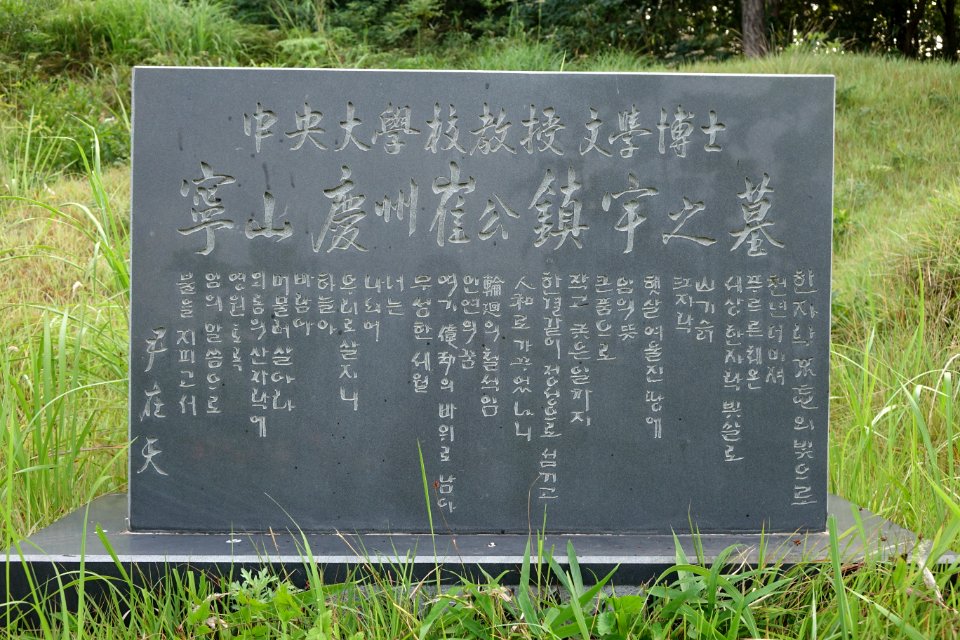 中央大學校教授文学博士
寧山慶州崔公鎮宇之墓
한 자락 의 빛으로
천 년 더 마셔
푸르른 해온
세상 한 자락 빗살로
산기슭
끄자락
햇살 여울진 땅에
임의 뜻
큰 품으로
작고 궂은일까지
한결같이 정성으로 섬기고
人和로 가꾸었나니
輪廻의 헐석임
인연의 꿈
여기 偉 의 바위로 남아
무성한 세월
너는
나되어
으리로 살지니
하늘아
바람아
머물러 살다라
외롬의 산자락에
연원토록
임의 말씀으로
불을 지피고서
尹在天